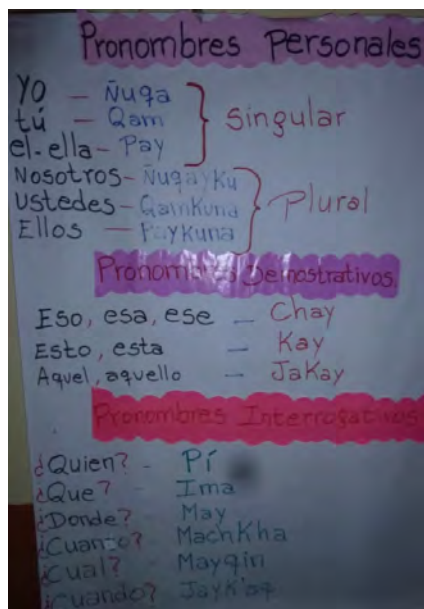 Pronombres Personales
Yo — Ñuqa
tú — Qam
el-ella- Pay
Singular
Nosotros- Ñuqayku
Ustedes- Qamkuna
Ellos — Paykuna
Plural
Pronombres Demostrativos.
Eso, esa, ese — Chay
Esto, esta — Kay
Aquel, aquello - JaKay
Pronombres Interrogativos
¿Quien? - Pí
¿Que? - Ima
¿Donde? May
¿Cuanto? MachKha
¿Cual? Mayqin
¿Cuando? Jayk'aq